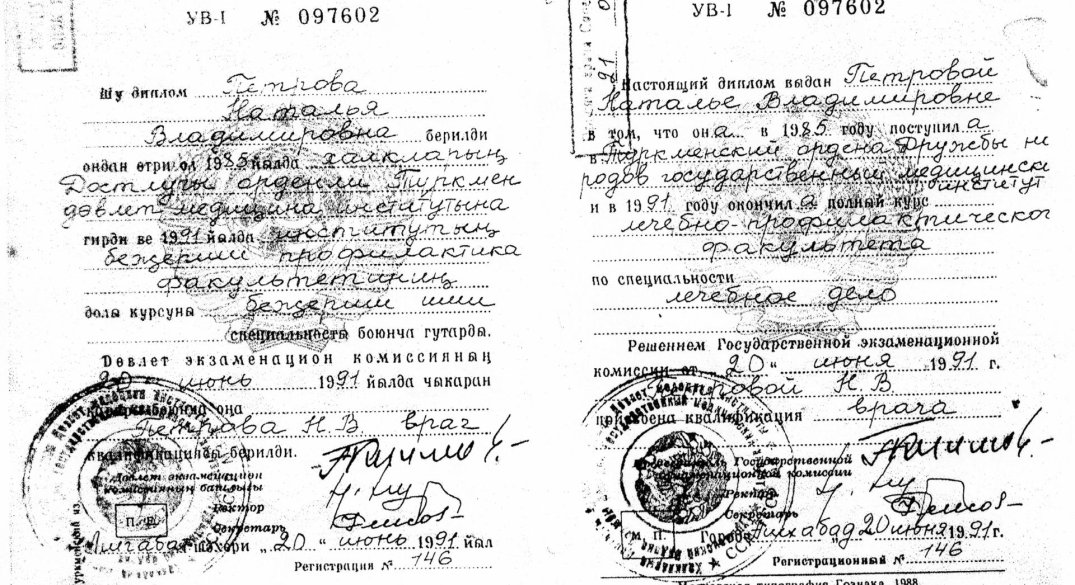 УВ-I № 097602
Шу диплом Петрова
Наталья
Владимировна берилди
ондан өтри ол 1985 йылда халкларың
Достлугы орденли Түркмен
дөвлет медицина институтына
гирди ве 1991 йылда институтың
бежериш профилактика
факультетиниң
долы курсуны бежериш иши
специальность боюнча гутарды.
Дөвлет экзаменацион комиссияның
20 июнь 1991 йылда чыкаран
боюнча она
Петрова Н. В. врач
квалификациясы берилди.
Дөвлет экзаменацион
комиссияның башлыгы
Ректор
Секретарь
Ашгабат шәхери „20“ июнь 1991 йыл
Регистрация № 146
УВ-I № 097602
Настоящий диплом выдан Петровой
Наталье Владимировне
в том, что она в 1985 году поступила
в Туркменский ордена Дружбы на
родов государственный медицински
институт
и в 1991 году окончила полный курс
лечебно-профилактическог
факультета
по специальности
лечебное дело
Решением Государственной экзаменационной
комиссии от „20“ июня 1991 г.
ровой Н. В
присвоена квалификация врача
Председатель Государственной
экзаменационной комиссии
Ректор
Секретарь
М. П. Город Ашхабад 20 июня 1991 г.
Регистрационный № 146
типография Гознака. 1988.